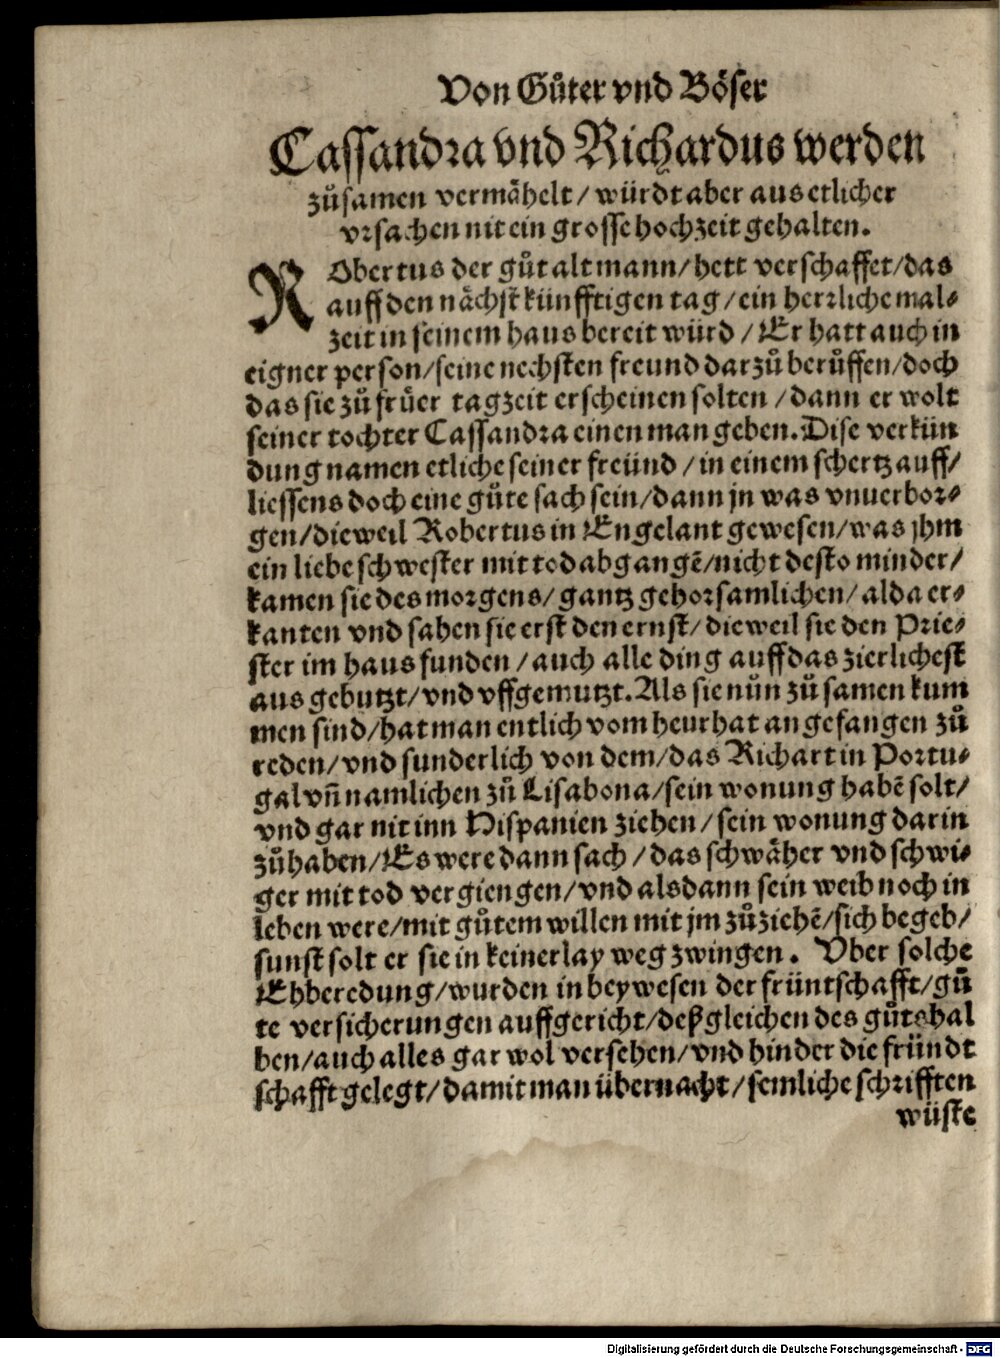 Von Gůter vnd Böser
Cassandra vnd Richardus werden
zůsamen vermähelt / würdt aber aus etlicher
vrsachen nit ein grosse hochzeit gehalten.
RObertus der gůt alt mann / hett verschaffet / das
auff den nächst künfftigen tag / ein herrliche mal-
zeit in seinem haus bereit würd / Er hatt auch in
eigner person / seine nechsten freund darzů berůffen / doch
das sie zů frůer tagzeit erscheinen solten / dann er wolt
seiner tochter Cassandra einen man geben. Dise verkün
dung namen etliche seiner freünd / in einem schertz auff /
liessens doch eine gůte sach sein / dann jn was vnuerbor-
gen / dieweil Robertus in Engelant gewesen / was jhm
ein liebe schwester mit tod abgangẽ / nicht desto minder /
kamen sie des morgens / gantz gehorsamlichen / alda er-
kanten vnd sahen sie erst den ernst / dieweil sie den Prie-
ster im haus funden / auch alle ding auff das zierlichest
aus gebutzt / vnd vffgemutzt. Als sie nůn zů samen kum
men sind / hat man entlich vom heurhat angefangen zů
reden / vnd sunderlich von dem / das Richart in Portu-
gal vñ namlichen zů Lisabona / sein wonung habẽ solt /
vnd gar nit inn Hispanien ziehen / sein wonung darin
zůhaben / Es were dann sach / das schwäher vnd schwi-
ger mit tod vergiengen / vnd alsdann sein weib noch in
leben were / mit gůtem willen mit jm zůziehẽ / sich begeb /
sunst solt er sie in keinerlay weg zwingen. Vber solche
Ehberedung / wurden in beywesen der früntschafft / gů
te versicherungen auffgericht / deßgleichen des gůts hal
ben / auch alles gar wol versehen / vnd hinder die fründt
schafft gelegt / damit man über nacht / semliche schrifften
wüste
Digitalisierung gefördert durch die Deutsche Forschungsgemeinschaft - DFG